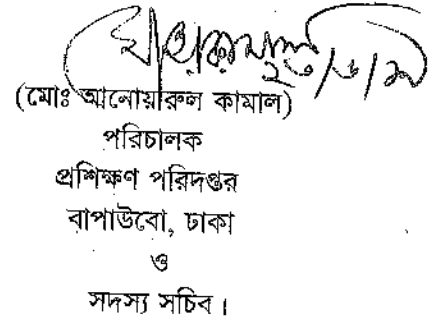 (মোঃ আনোয়ারুল কামাল)
পরিচালক
প্রশিক্ষণ পরিদপ্তর
বাপাউবো, ঢাকা
ও
সদস্য সচিব।